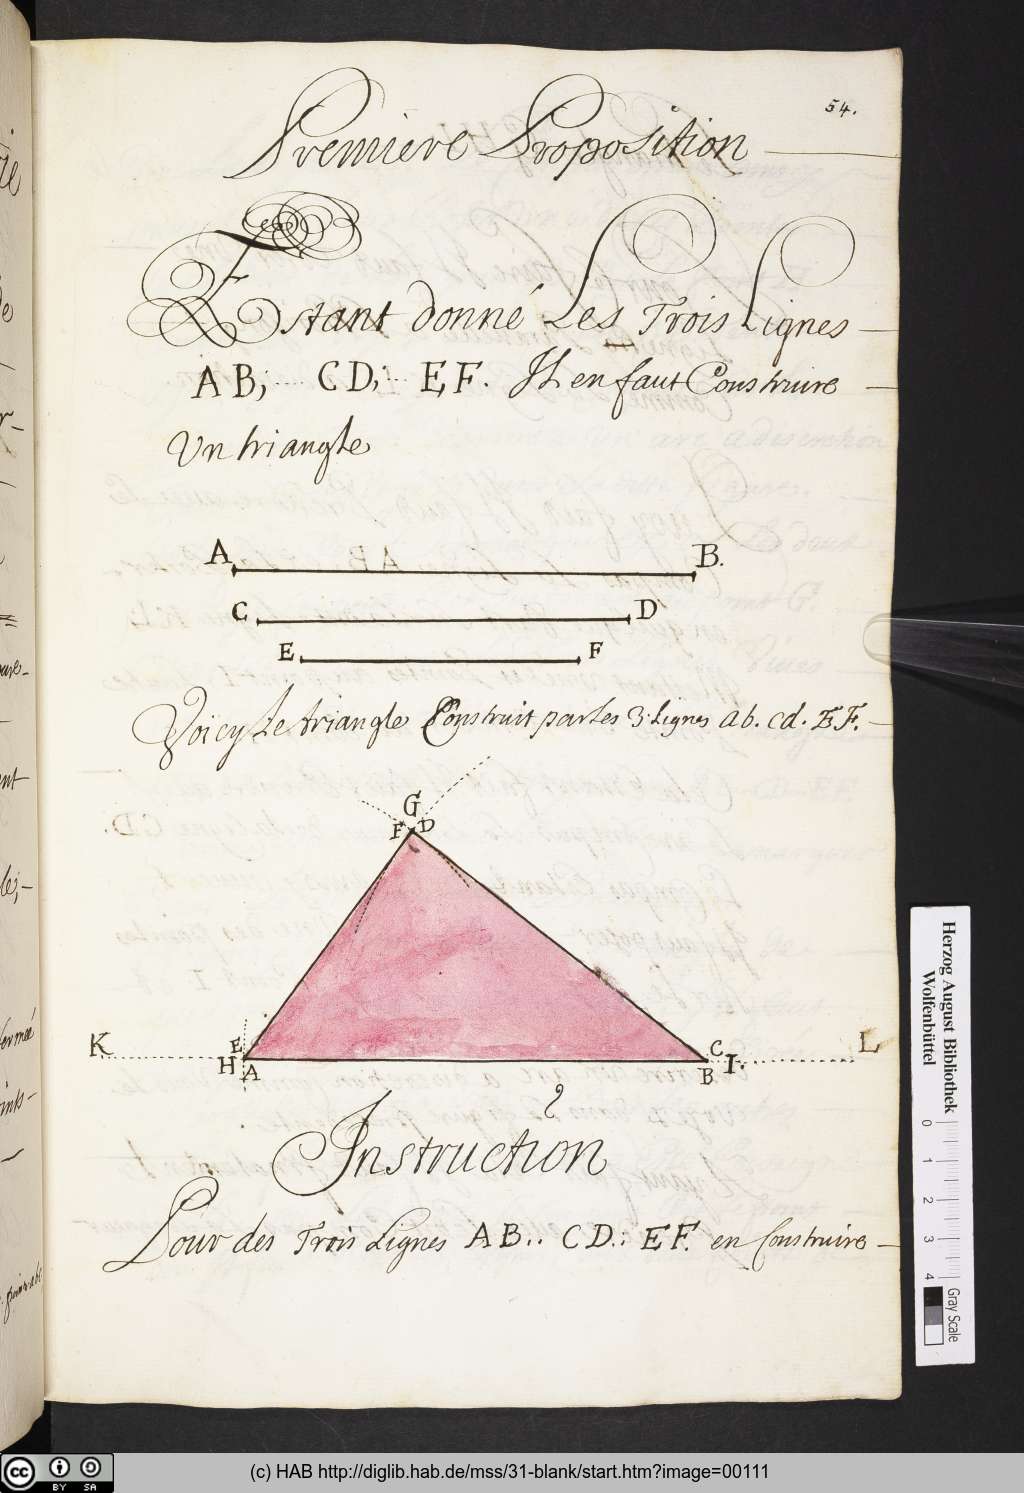 54.
Premiere Proposition
Estant donné Les Trois Lignes
AB; CD; EF. Il en faut Construire
Un triangle
A B.
C D
E F
Voicy Le triangle Construit par les 3 Lignes ab. cd. EF.
G
F D
K E C L
H A B I.
Instruction
Pour des Trois Lignes AB.. CD.: EF. en Construire
Herzog August Bibliothek
Wolfenbüttel
0 1 2 3 4
Gray Scale
cc BY SA
(c) HAB http://diglib.hab.de/mss/31-blank/start.htm?image=00111